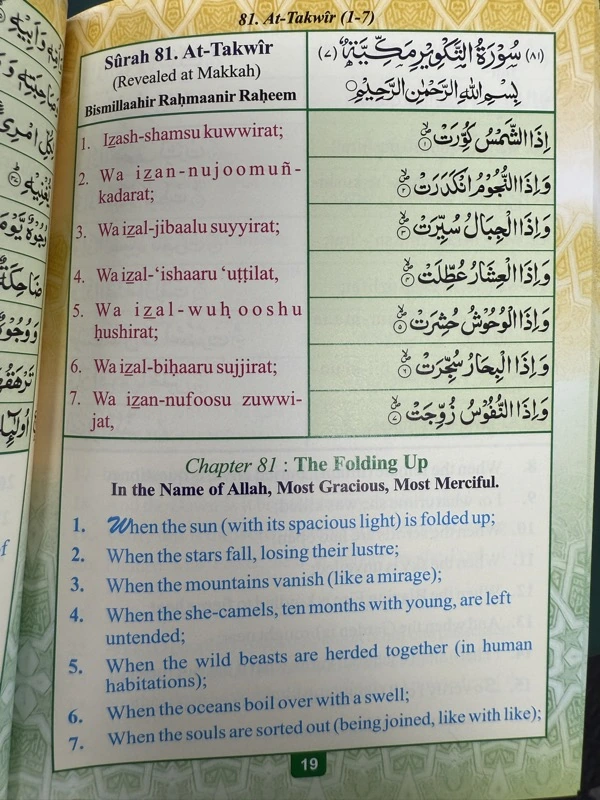 81. At-Takwîr (1-7)
Sûrah 81. At-Takwîr
(Revealed at Makkah)
Bismillaahir Raḥmaanir Raḥeem
(٨١) سُوْرَةُ التَّكْوِيْرِ مَكِّيَّةٌ (٧)
بِسْمِ اللهِ الرَّحْمٰنِ الرَّحِيْمِ
1. Izash-shamsu kuwwirat;
اِذَا الشَّمْسُ كُوِّرَتْ ۙ ١
2. Wa izan-nujoomuñ-
kadarat;
وَاِذَا النُّجُوْمُ انْكَدَرَتْ ۙ ٢
3. Wa izal-jibaalu suyyirat;
وَاِذَا الْجِبَالُ سُيِّرَتْ ۙ ٣
4. Wa izal-‘ishaaru ‘uṭṭilat,
وَاِذَا الْعِشَارُ عُطِّلَتْ ۙ ٤
5. Wa izal-wuḥooshu
ḥushirat;
وَاِذَا الْوُحُوْشُ حُشِرَتْ ۙ ٥
6. Wa izal-biḥaaru sujjirat;
وَاِذَا الْبِحَارُ سُجِّرَتْ ۙ ٦
7. Wa izan-nufoosu zuwwi-
jat,
وَاِذَا النُّفُوْسُ زُوِّجَتْ ۙ ٧
Chapter 81 : The Folding Up
In the Name of Allah, Most Gracious, Most Merciful.
1. When the sun (with its spacious light) is folded up;
2. When the stars fall, losing their lustre;
3. When the mountains vanish (like a mirage);
4. When the she-camels, ten months with young, are left
untended;
5. When the wild beasts are herded together (in human
habitations);
6. When the oceans boil over with a swell;
7. When the souls are sorted out (being joined, like with like);
19